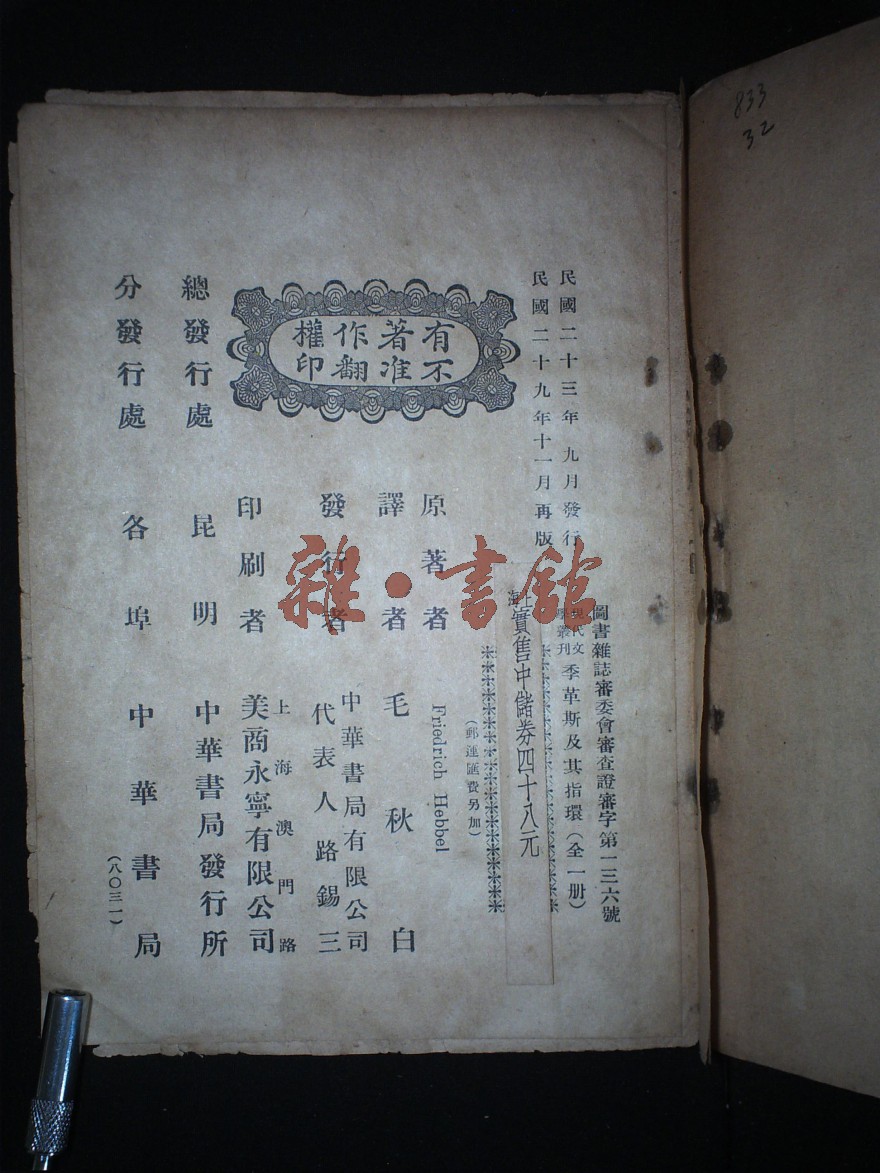 833
32
民國二十三年九月發行
民國二十九年十一月再版
圖書雜誌審委會審查證審字第一三六號
現代文
學叢刊
季革斯及其指環(全一册)
上
海
實售中儲券四十八元
(郵運匯費另加)
有著作權
不准翻印
原著者 Friedrich Hebbel
譯者 毛秋白
發行者 中華書局有限公司
代表人路錫三
印刷者 上海澳門路
美商永寧有限公司
總發行處 昆明 中華書局發行所
分發行處 各埠 中華書局
(八〇三一)
雜·書館